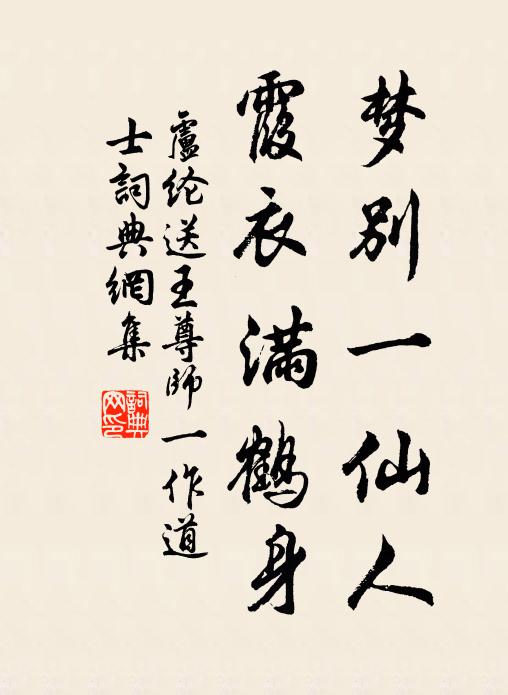 梦别一仙人
霞衣满鹤身
盧纶送王尊師一作道
士詞典網集
詞典网印